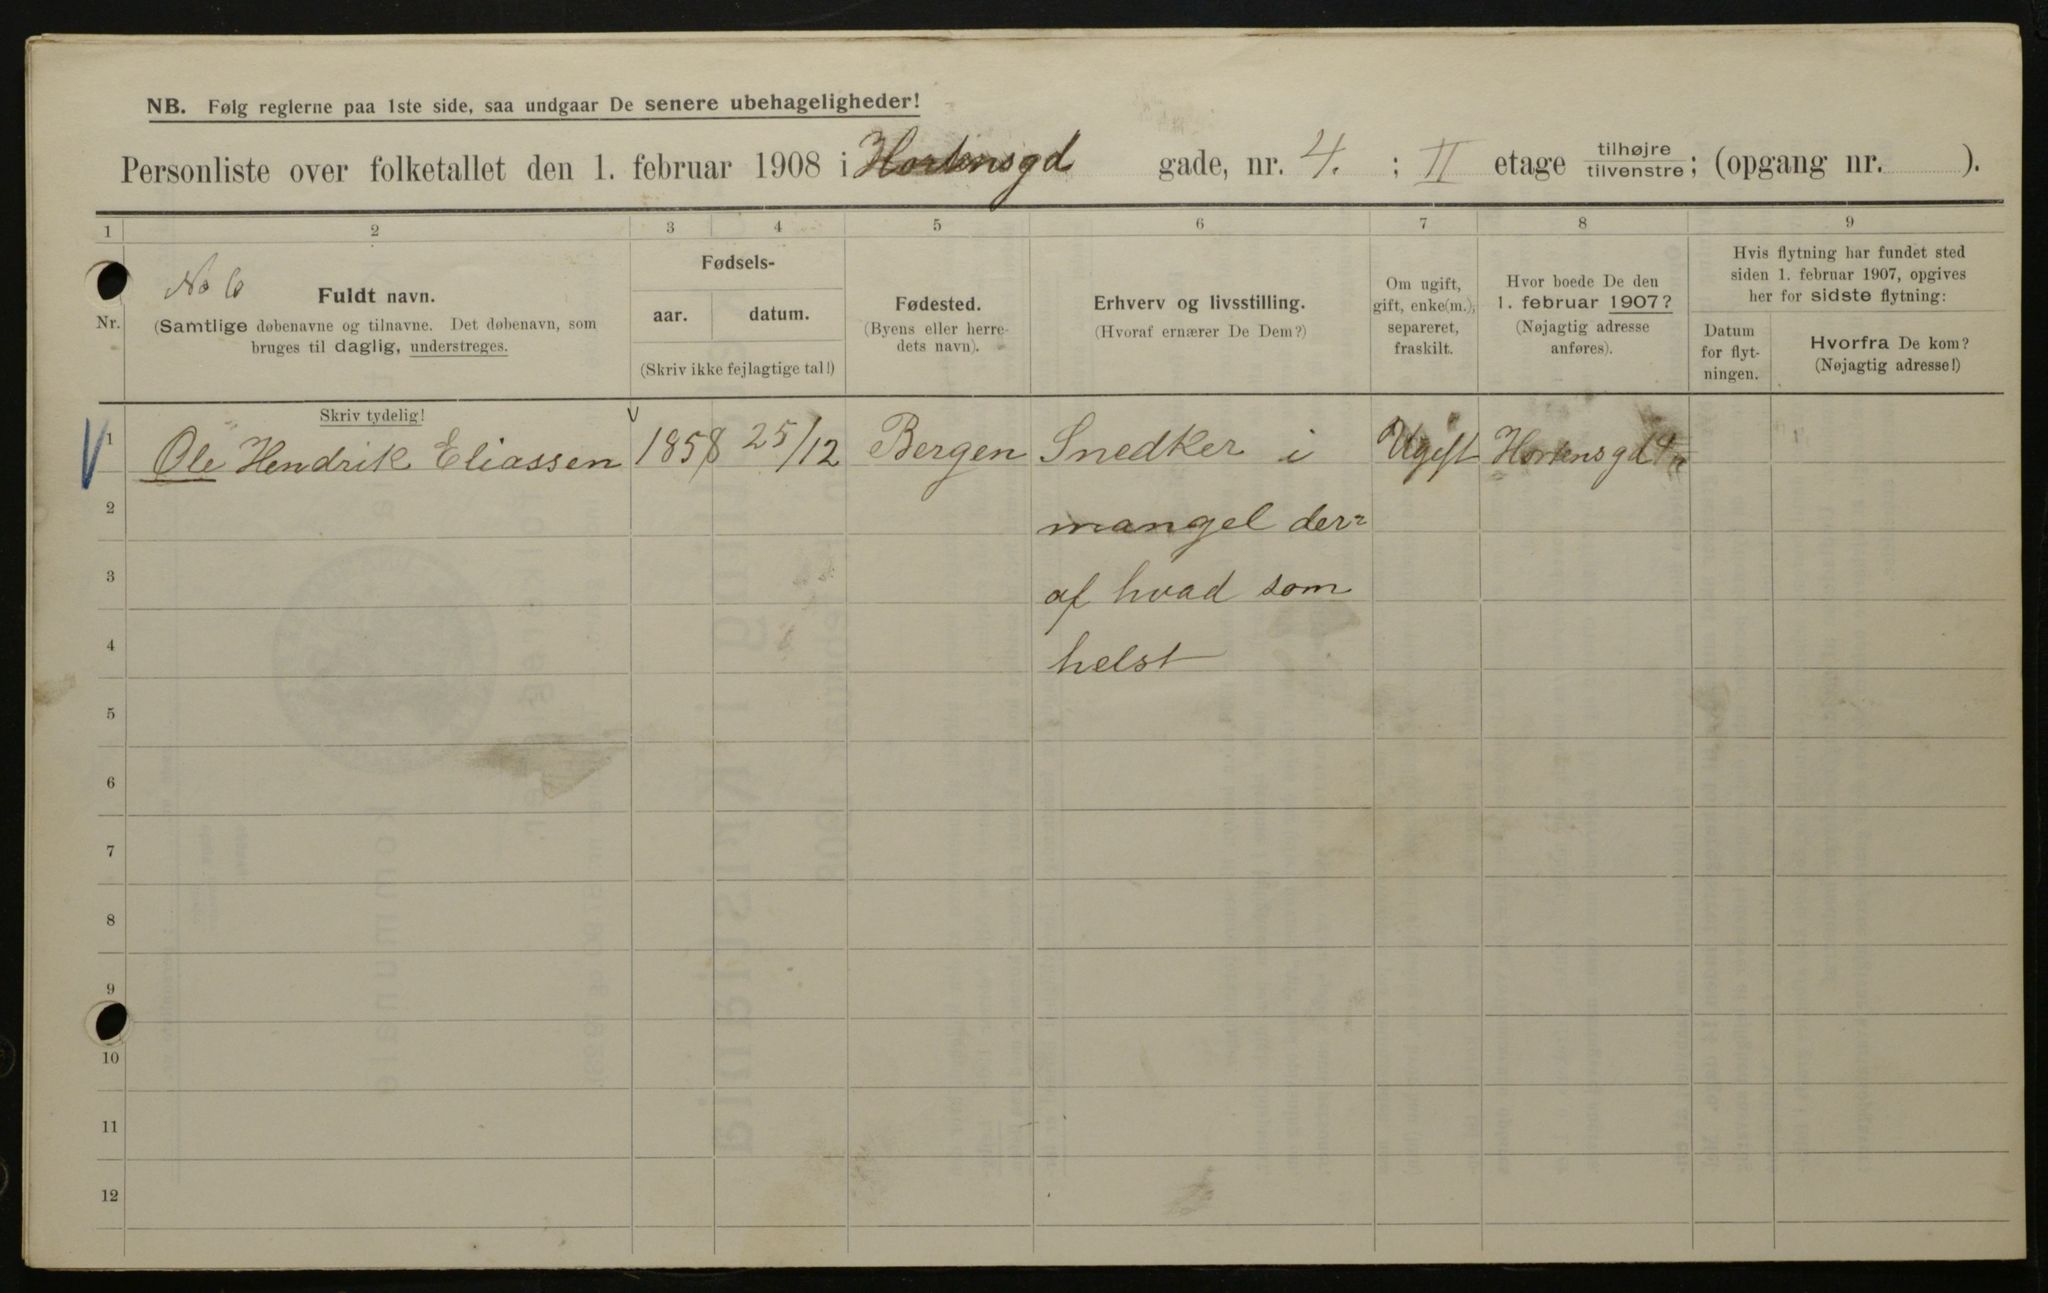 NB. Følg reglerne paa 1ste side, saa undgaar De senere ubehageligheder!
Personliste over folketallet den 1. februar 1908 i Hortensgd gade, nr. 4. ; II etage tilhøjre tilvenstre; (opgang nr. ).
1 2 3 4 5 6 7 8 9
No 6
Nr.
Fuldt navn.
(Samtlige døbenavne og tilnavne. Det døbenavn, som
bruges til daglig, understreges.
Skriv tydelig!
Fødsels-
aar. datum.
(Skriv ikke fejlagtige tal!)
Fødested.
(Byens eller herre-
dets navn).
Erhverv og livsstilling.
(Hvoraf ernærer De Dem?)
Om ugift,
gift, enke(m.),
separeret,
fraskilt.
Hvor boede De den
1. februar 1907?
(Nøjagtig adresse
anføres).
Hvis flytning har fundet sted
siden 1. februar 1907, opgives
her for sidste flytning:
Datum
for flyt-
ningen.
Hvorfra De kom?
(Nøjagtig adresse!)
1 Ole Hendrik Eliassen 1858 25/12 Bergen Snedker i Ugift Hortensgd 4
2 mangel der=
3 af hvad som
4 helst
5
6
7
8
9
10
11
12